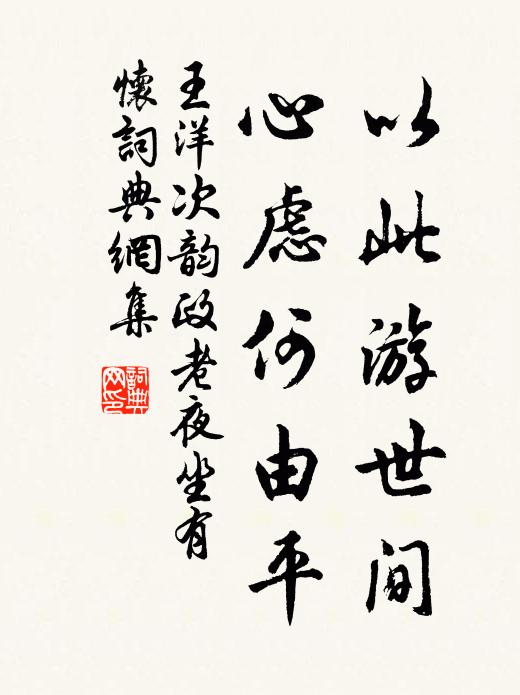 以此游世间
心虑何由平
王洋次韵政老夜坐有
懷詞典網集
詞典
网印